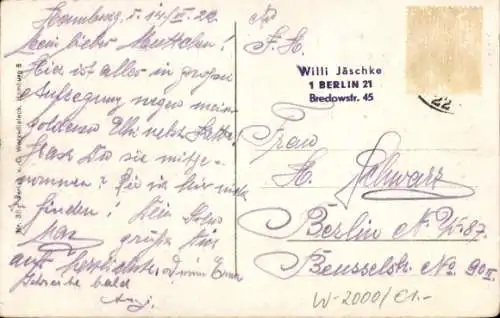 Hamburg, d. 14./II. 22.
Mein lieber Muttchen!
Hier ist alles in großer
Aufregung wegen meiner
goldenen Uhr nebst Kette!
Hast Du sie mitge-
nommen? Sie ist für mich
finden! Dein Sohn
Max grüßt Dich
auf herzlichste. Deine Erna
Schreibe bald
Nr. 30
Willi Jäschke
1 BERLIN 21
Bredowstr. 45
22
Frau
H. Schwarz
Berlin N.W. 87.
Beusselstr. No. 90 II.
W-2000/€1.-